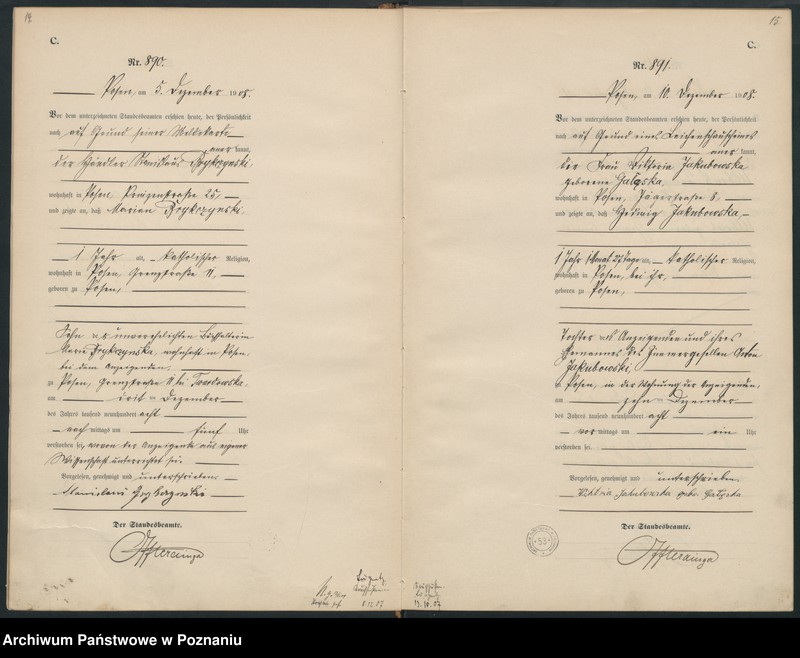 14
C.
Nr. 890.
Posen, am 5. Dezember 1908.
Vor dem unterzeichneten Standesbeamten erschien heute, der Persönlichkeit
nach auf Grund seiner
aner kannt,
der Händler Stanislaus
wohnhaft in Posen 25,
und zeigte an, daß Marian
1 Jahr alt, katholischer Religion,
wohnhaft in Posen Grenzstraße 11,
geboren zu Posen,
Sohn der unverehelichten
Marie wohnhaft in Posen
bei dem Anzeigenden,
zu Posen, Grenzstraße 11 bei
am drei ten Dezember
des Jahres tausend neunhundert acht
nach mittags um fünf Uhr
verstorben sei, wovon der Anzeigende aus eigener
Wissenschaft unterrichtet sei.
Vorgelesen, genehmigt und unterschrieben
Der Standesbeamte.
15
C.
Nr. 891.
Posen, am 10. Dezember 1908.
Vor dem unterzeichneten Standesbeamten erschien heute, der Persönlichkeit
nach auf Grund eines Leichenschauscheines
aner kannt,
die Frau Viktoria Jakubowska
geborene Gałęska,
wohnhaft in Posen, Jägerstraße 8,
und zeigte an, daß Hedwig Jakubowska,
1 Jahr 1 Monat Tage alt, katholischer Religion,
wohnhaft in Posen, bei ihr,
geboren zu Posen,
Tochter der Anzeigenden und ihres
Ehemannes des Zimmergesellen
Jakubowski,
zu Posen, in der Wohnung der Anzeigenden,
am zehn ten Dezember
des Jahres tausend neunhundert acht
vor mittags um ein Uhr
verstorben sei.
Vorgelesen, genehmigt und unterschrieben.
Viktoria Jakubowska gebr. Gałęska
Der Standesbeamte.
53
Archiwum Państwowe w Poznaniu